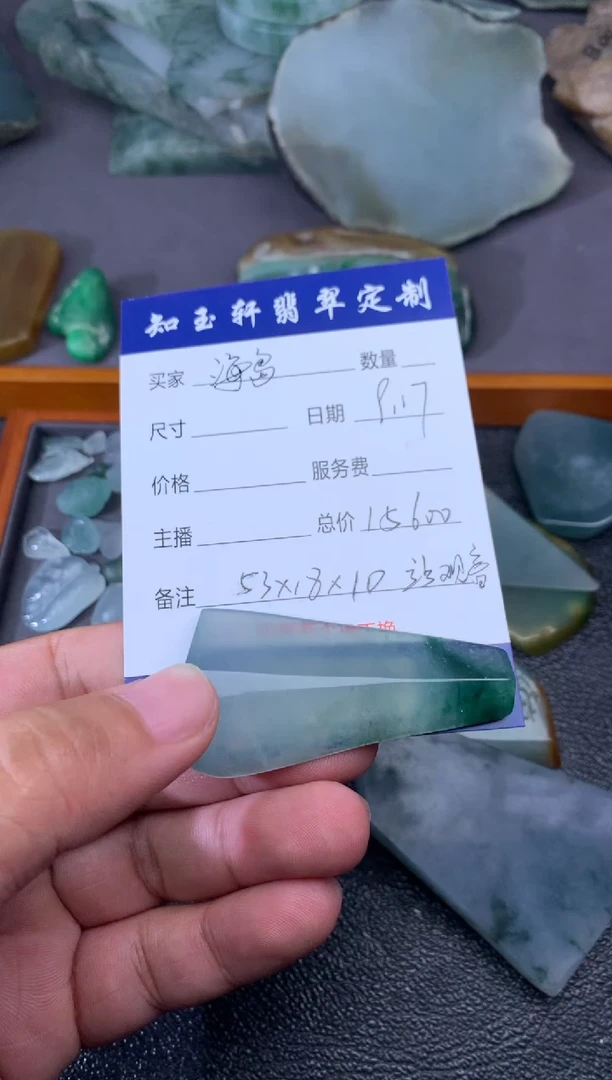 知玉轩翡翠定制
买家 海岛 数量
尺寸 日期 9.17
价格 服务费
主播 总价 15600
备注 53×18×10 站观音